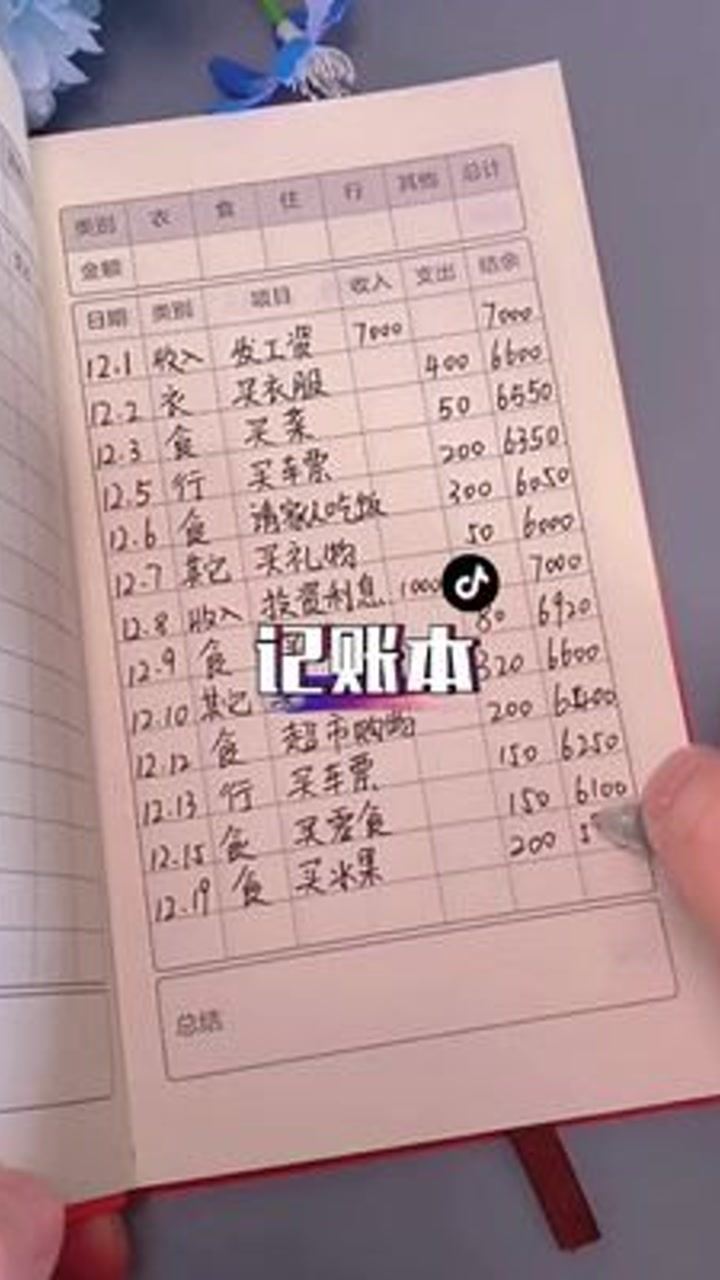 类别 衣 食 住 行 其他 总计
金额
日期 类别 项目 收入 支出 结余
12.1 收入 发工资 7000 7000
12.2 衣 买衣服 400 6600
12.3 食 买菜 50 6550
12.5 行 买车票 200 6350
12.6 食 请家人吃饭 300 6050
12.7 其它 买礼物 50 6000
12.8 收入 投资利息 1000 7000
12.9 食 80 6920
记账本
12.10 其它 320 6600
12.12 食 超市购物 200 6400
12.13 行 买车票 150 6250
12.15 食 买零食 150 6100
12.19 食 买水果 200
总结